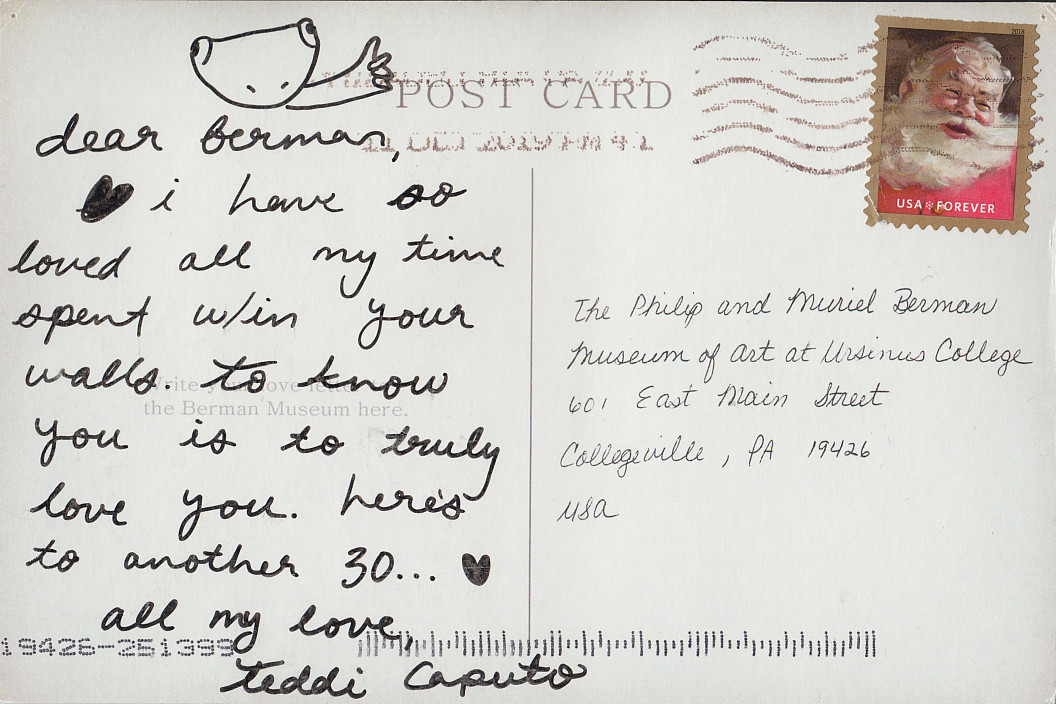 POST CARD
11 DEC 2019 PM 4 L
2018
USA FOREVER
dear berman,
i have so
loved all my time
spent w/in your
walls. to know
you is to truly
love you. here's
to another 30...
all my love,
teddi caputo
Write your love letter
the Berman Museum here.
The Philip and Muriel Berman
Museum of Art at Ursinus College
601 East Main Street
Collegeville, PA 19426
USA
19426-251399